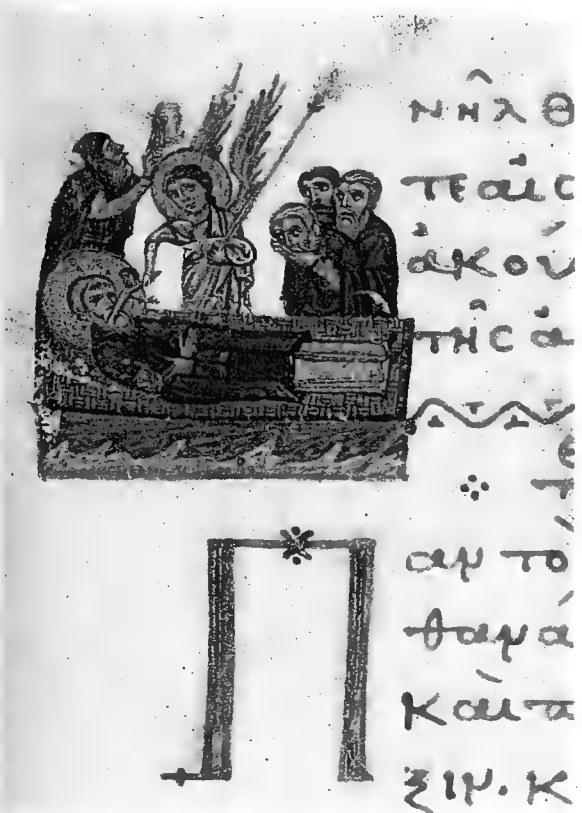 νῆλθ
πεαἰσ
ἀκού
τῆς ἀ
Π
αν το
θανά
καὶ τα
ξιν. κ